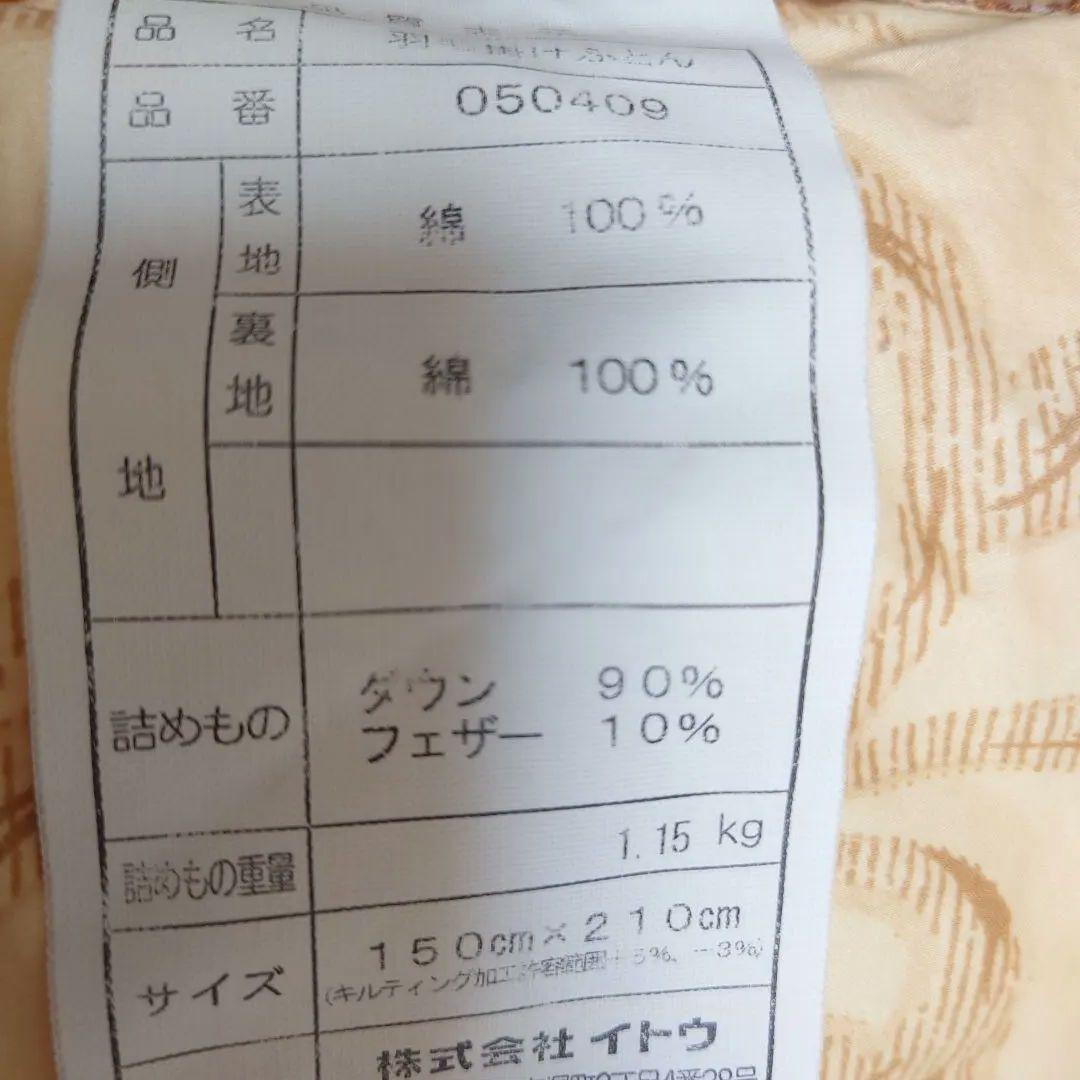 品名 羽毛掛けふとん
品番 050409
側地
表地 綿 100%
裏地 綿 100%
詰めもの ダウン 90%
フェザー 10%
詰めもの重量 1.15 kg
サイズ 150cm×210cm
(キルティング加工許容範囲+5%、-3%)
株式会社イトウ